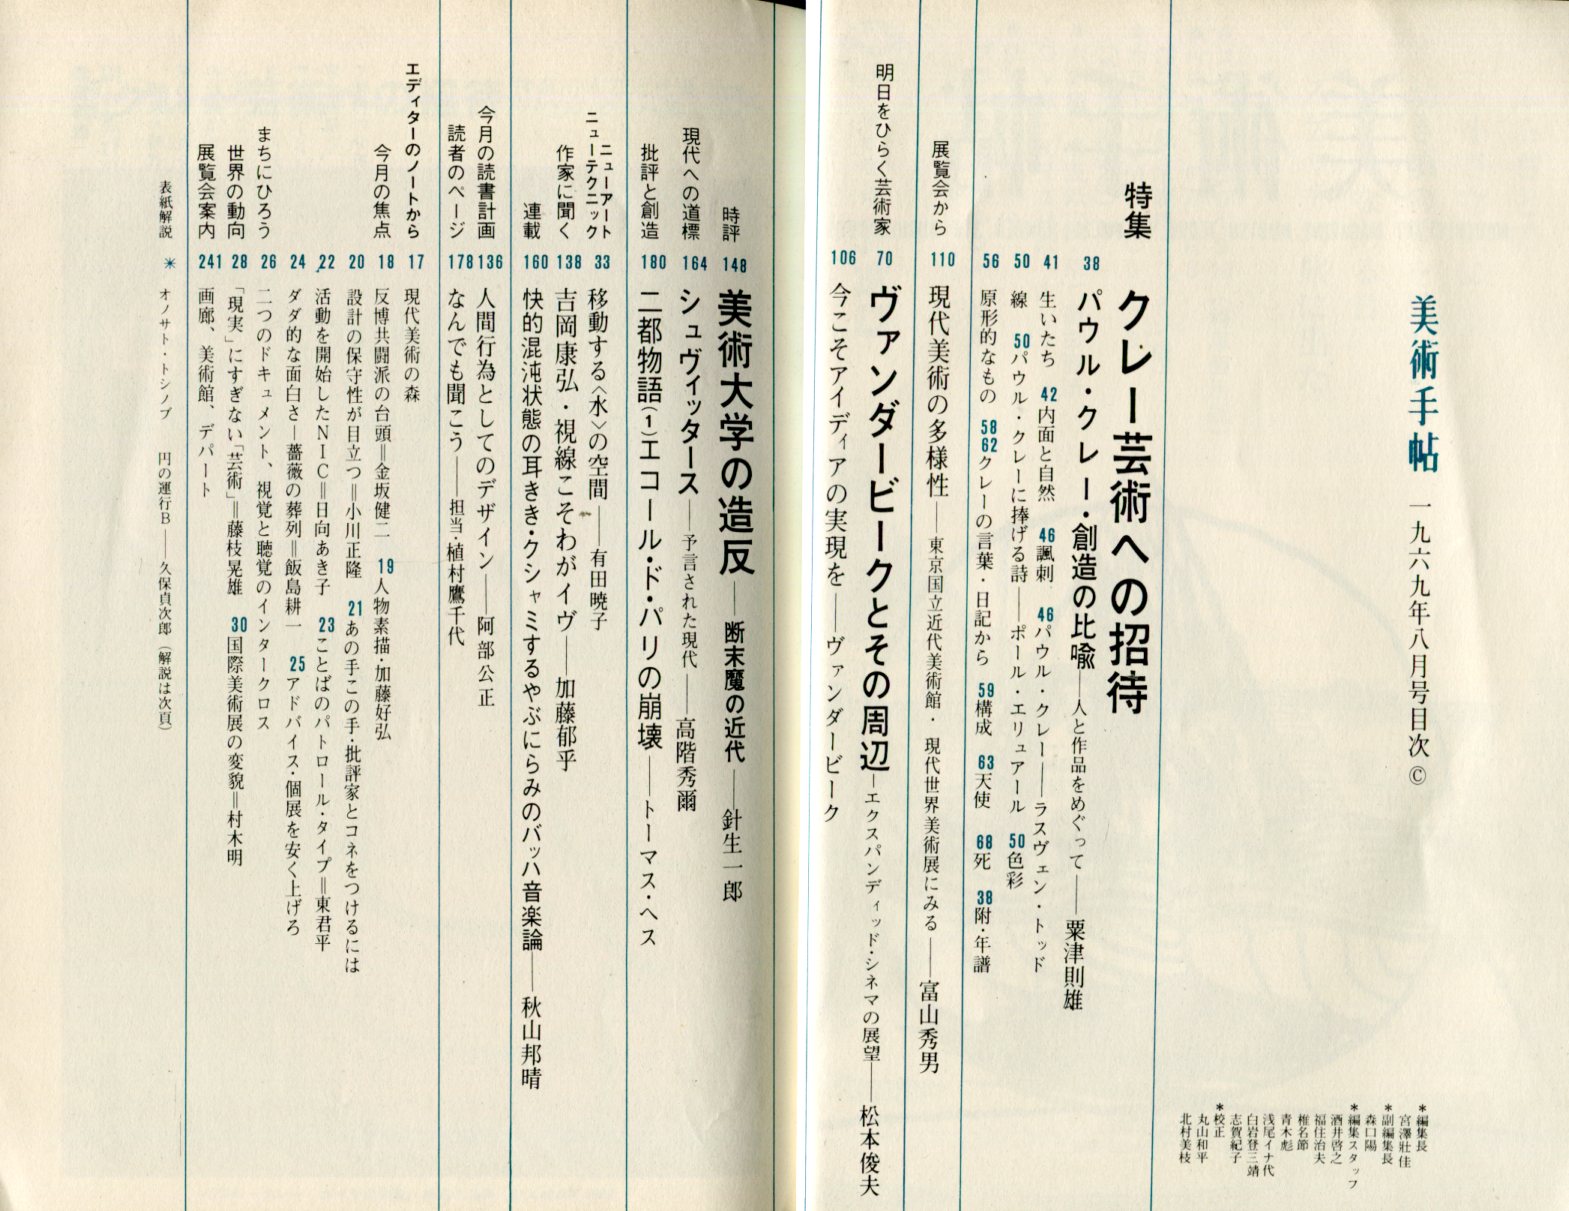 美術手帖 一九六九年八月号目次 ©
*編集長
宮澤壯佳
*副編集長
森口陽
*編集スタッフ
酒井啓之
福住治夫
椎名節
青木彪
浅尾イナ代
白岩登三靖
志賀紀子
*校正
丸山和平
北村美枝
特集 クレー芸術への招待
38 パウル・クレー・創造の比喩——人と作品をめぐって——粟津則雄
41 生いたち 42 内面と自然 46 諷刺 46 パウル・クレー——ラスヴェン・トッド
50 線 50 パウル・クレーに捧げる詩——ポール・エリュアール 50 色彩
56 原形的なもの 58 62 クレーの言葉・日記から 59 構成 63 天使 68 死 38 附・年譜
展覧会から 110 現代美術の多様性——東京国立近代美術館・現代世界美術展にみる——富山秀男
明日をひらく芸術家 70 ヴァンダービークとその周辺—エクスパンディッド・シネマの展望——松本俊夫
106 今こそアイディアの実現を——ヴァンダービーク
時評 148 美術大学の造反——断末魔の近代——針生一郎
現代への道標 164 シュヴィッタース——予言された現代——高階秀爾
批評と創造 180 二都物語(1)エコール・ド・パリの崩壊——トーマス・ヘス
ニューアート
ニューテクニック 33 移動する〈水〉の空間——有田暁子
作家に聞く 138 吉岡康弘・視線こそわがイヴ——加藤郁乎
連載 160 快的混沌状態の耳きき・クシャミするやぶにらみのバッハ音楽論——秋山邦晴
今月の読書計画 136 人間行為としてのデザイン——阿部公正
読者のページ 178 なんでも聞こう——担当・植村鷹千代
エディターのノートから 17 現代美術の森
今月の焦点 18 反博共闘派の台頭=金坂健二 19 人物素描・加藤好弘
20 設計の保守性が目立つ=小川正隆 21 あの手この手・批評家とコネをつけるには
22 活動を開始したNIC=日向あき子 23 ことばのパトロール・タイプ=東君平
24 ダダ的な面白さ—薔薇の葬列=飯島耕一 25 アドバイス・個展を安く上げろ
まちにひろう 26 二つのドキュメント、視覚と聴覚のインタークロス
世界の動向 28 「現実」にすぎない「芸術」=藤枝晃雄 30 国際美術展の変貌=村木明
展覧会案内 241 画廊、美術館、デパート
表紙解説 * オノサト・トシノブ 円の運行B——久保貞次郎(解説は次頁)